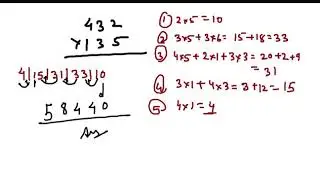 432
x135
4|15|31|33|10
58440
Ans
① 2x5=10
② 3x5+3x6= 15+18=33
③ 4x5+2x1+3x3= 20+2+9
= 31
④ 3x1+4x3=3+12=15
⑤ 4x1=4